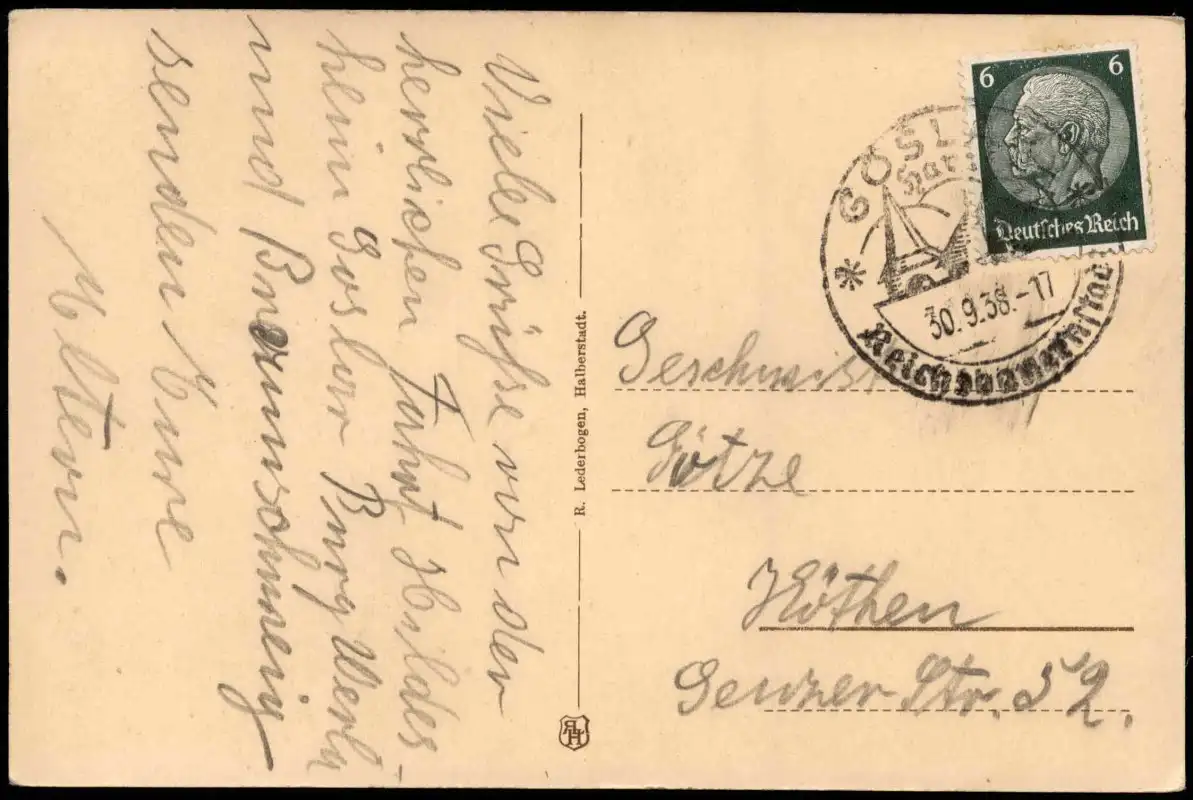 Viele Grüße von der
herrlichen Fahrt Hildes-
heim Goslar Burg Werla
und Braunschweig
senden Eure
Eltern.
R. Lederbogen, Halberstadt.
6 6
Deutsches Reich
GOSL
Har
30.9.38.-17
Reichsbauernstad
Geschwist
Götze
Köthen
Geuzer Str. 52.
RLH